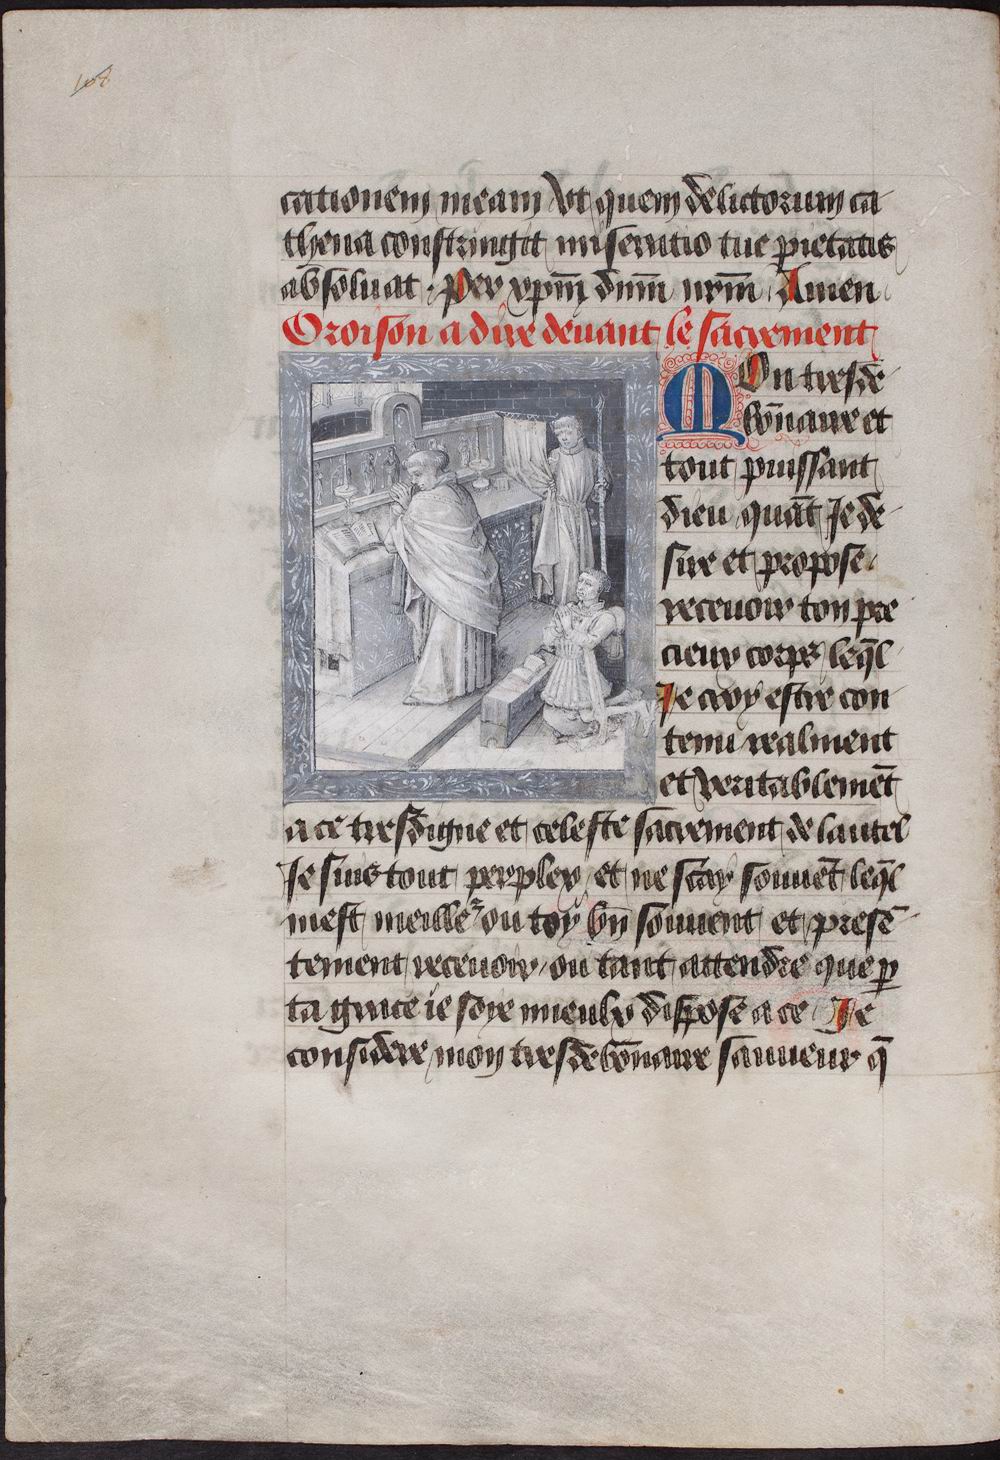 108
cationem meam Vt quem delictorum ca
thena constringit miseratio tue pietatis
absoluat . Per xpm̄ dnm̄ nrm̄ Amen
Oroison a dire deuant le sacrement
MOn tresde
bōnaire et
tout puissant
dieu quāt Je de
sire et propose
receuoir ton pre
cieux corps leq̄l
Je croy estre con
tenu realment
et veritablemēt
a ce tresdigne et celeste sacrement de lautel
Je suis tout perplex et ne scay souuēt leq̄l
mest meille͛ ou toy bn̄ souuent et presē
tement receuoir ou tant attendre que ꝑ
ta grace ie soye mieulx dispose a ce Je
considere mon tresdebōnaire sauueur q̄